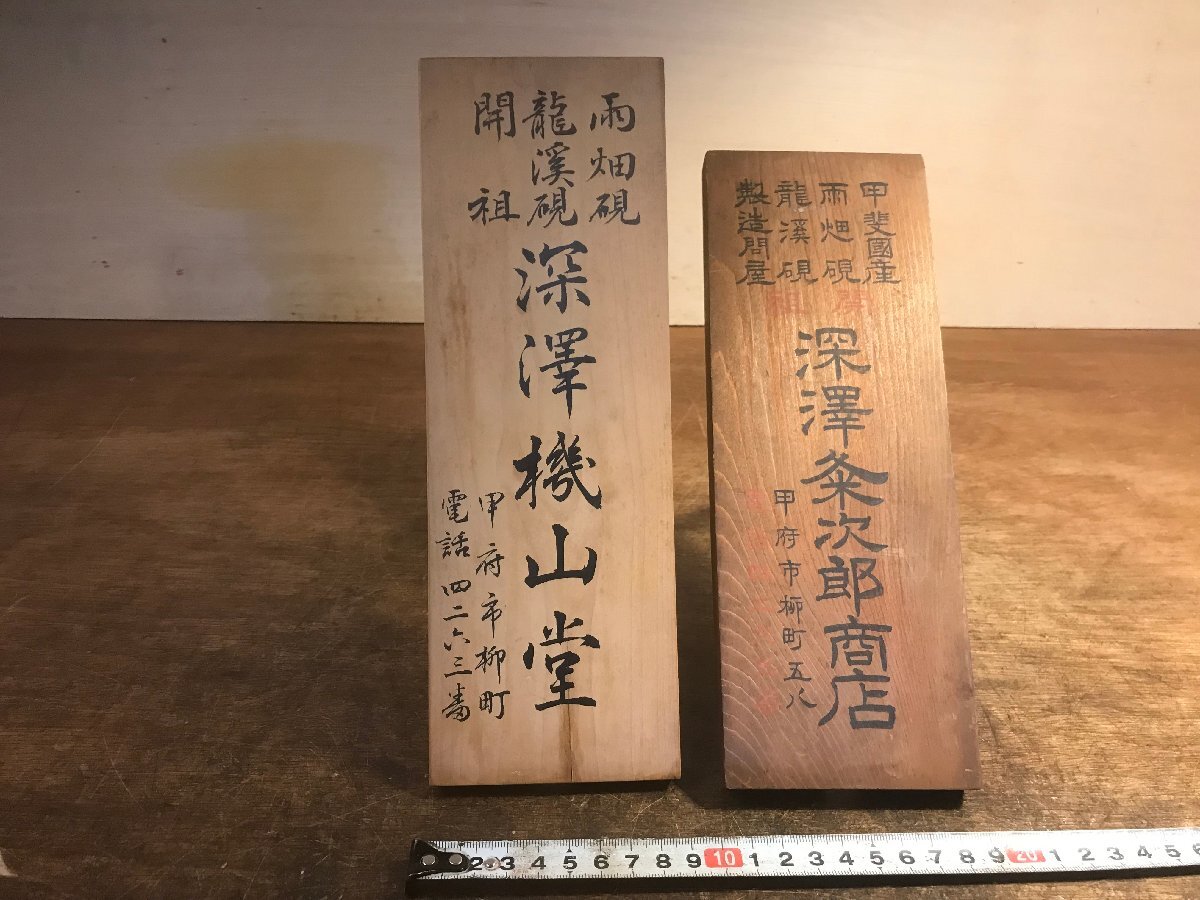 雨畑硯
龍溪硯
開祖
深澤機山堂
甲府市柳町
電話四二六三番
甲斐國産
雨畑硯
龍溪硯
製造問屋
深澤粂次郎商店
甲府市柳町五八
2 3 4 5 6 7 8 9 10 1 2 3 4 5 6 7 8 9 20 1 2 3 4 5 6